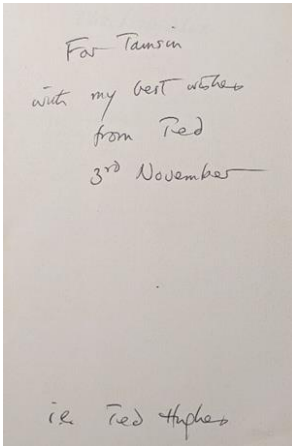 For Tamsin
with my best wishes
from Ted
3rd November
i.e. Ted Hughes